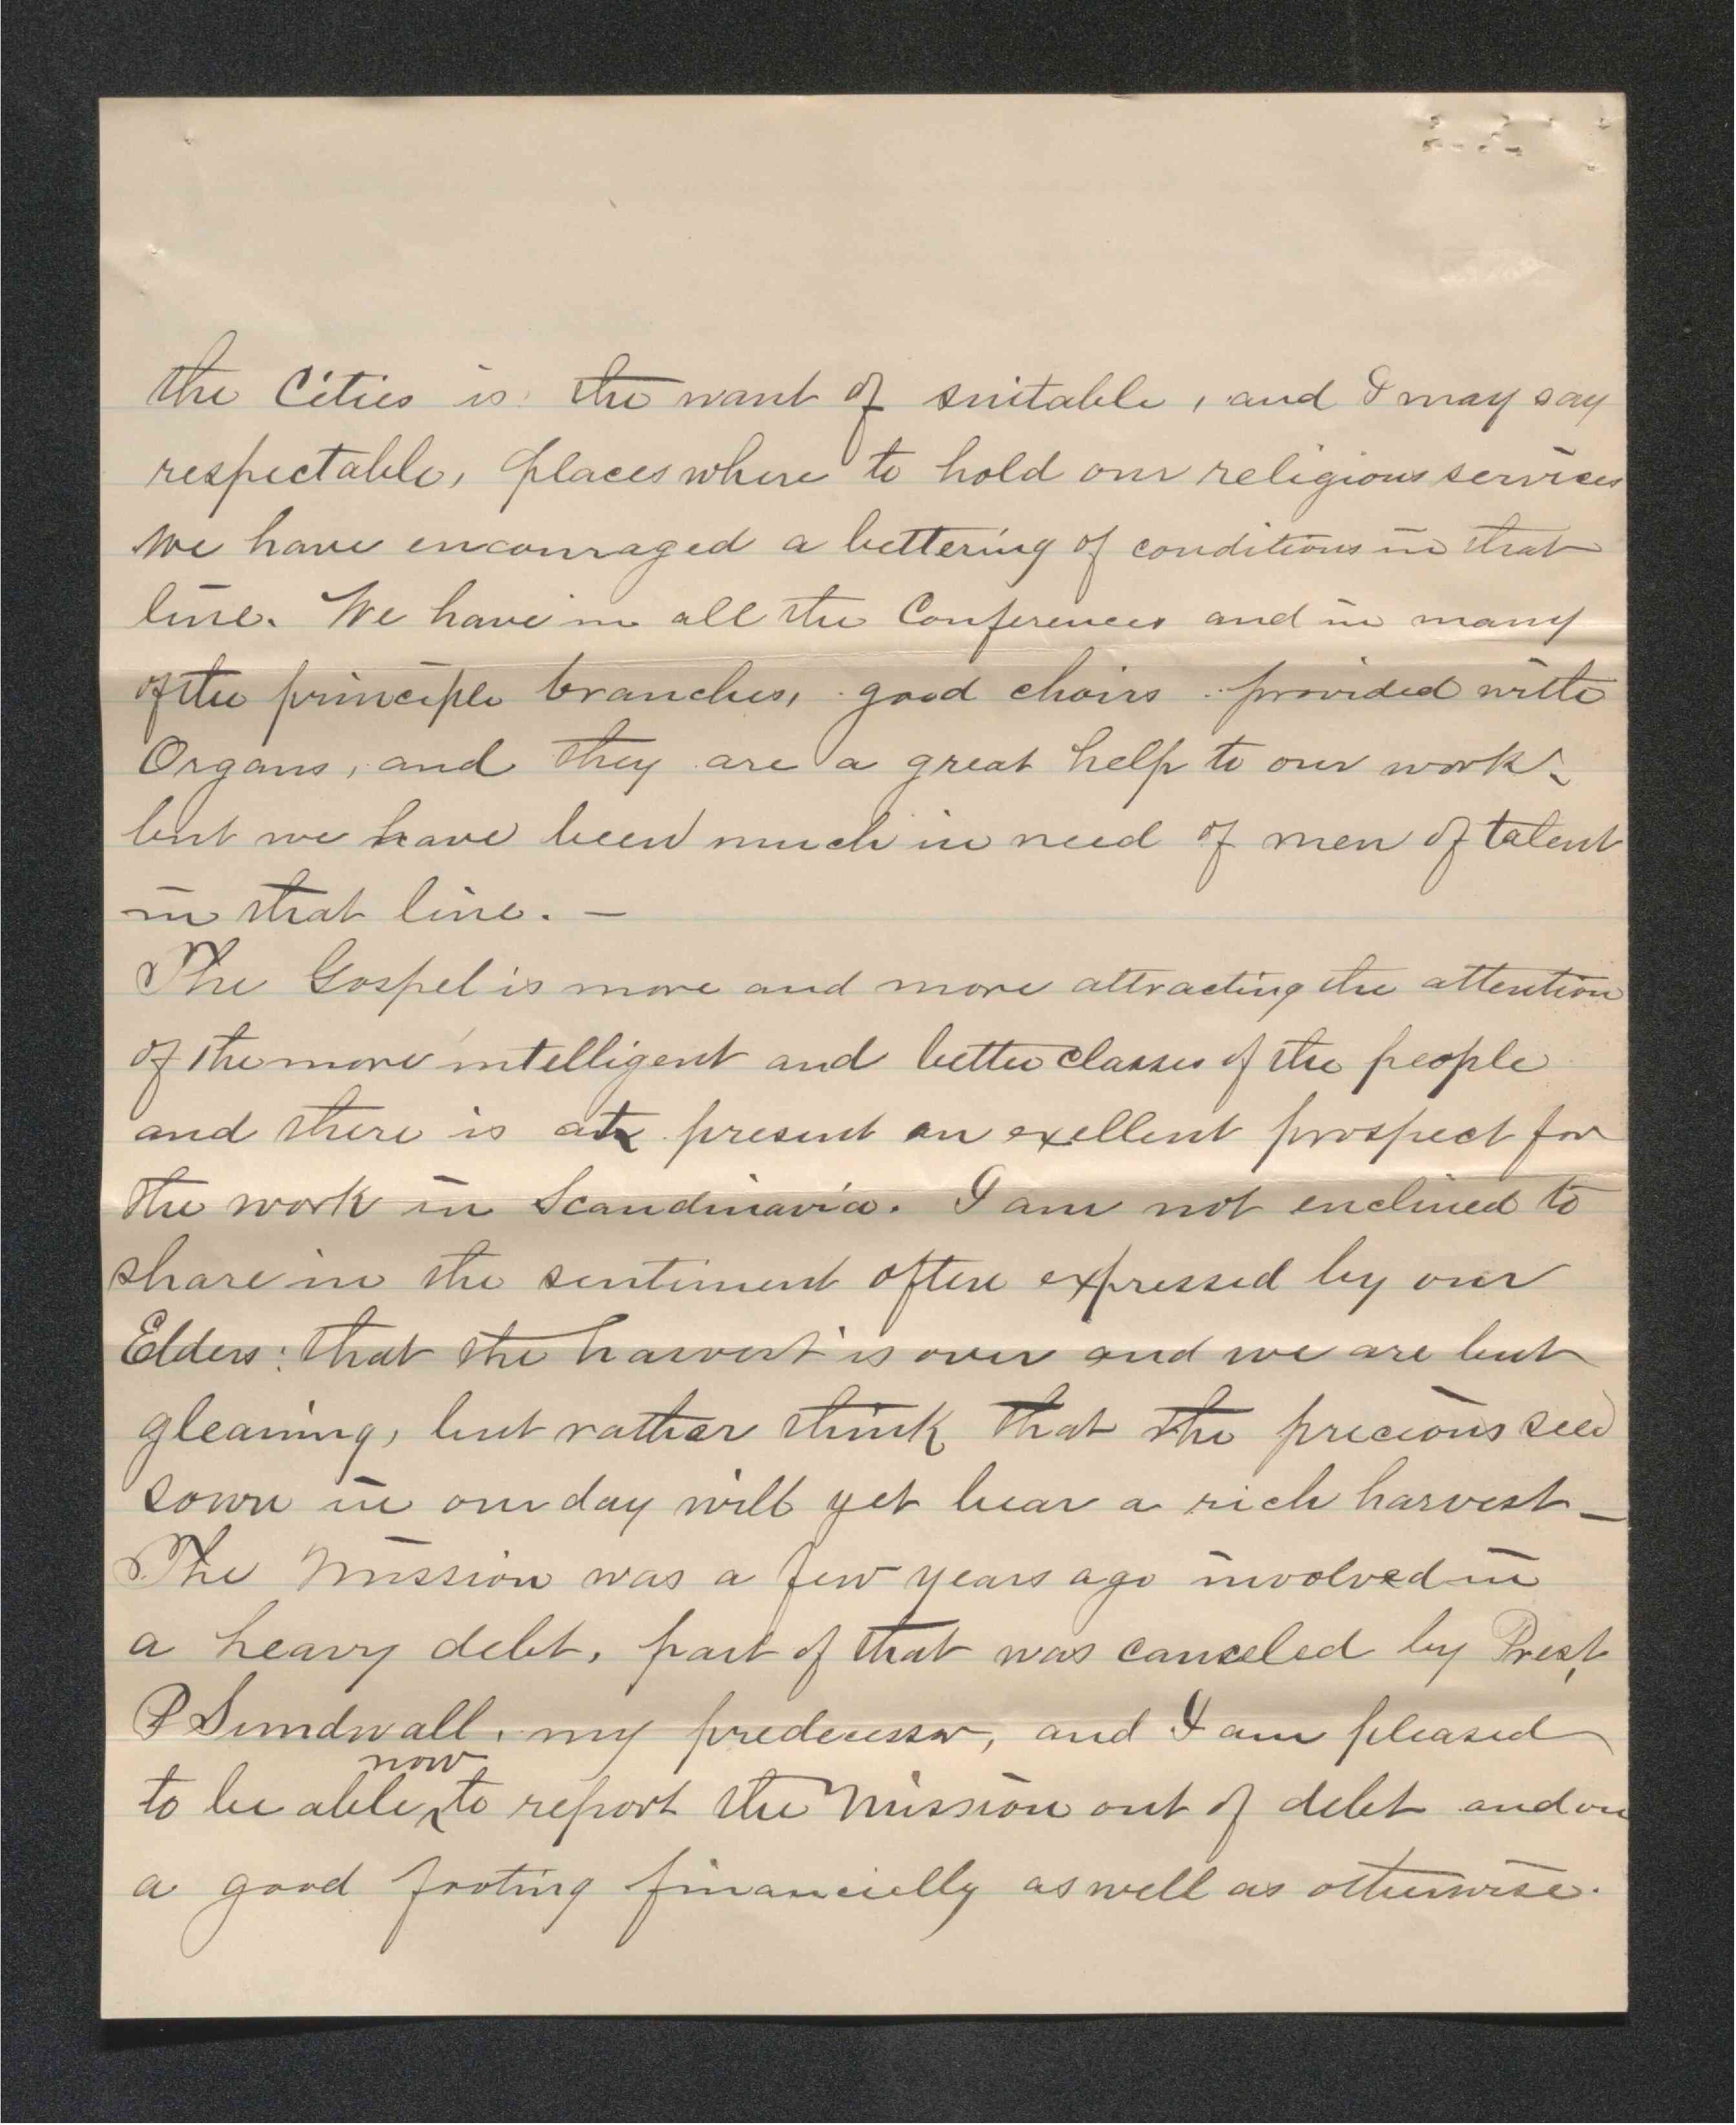 the Cities is the want of suitable, and I may say
respectable, places where to hold our religious services
We have encouraged a bettering of conditions in that
line. We have in all the Conferences and in many
of the principle branches, good choirs provided with
Organs, and they are a great help to our work -
but we have been much in need of men of talent
in that line. —
The Gospel is more and more attracting the attention
of the more intelligent and better classes of the people
and there is at present an exellent prospect for
the work in Scandinavia. I am not enclined to
share in the sentiment often expressed by our
Elders: that the harvest is over and we are but
gleaning, but rather think that the precious seed
sown in our day will yet bear a rich harvest —
The Mission was a few years ago involved in
a heavy debt, part of that was canceled by Prest,
P Sundwall, my predecessor, and I am pleased
to be able now to report the Mission out of debt and on
a good footing financielly as well as otherwise.